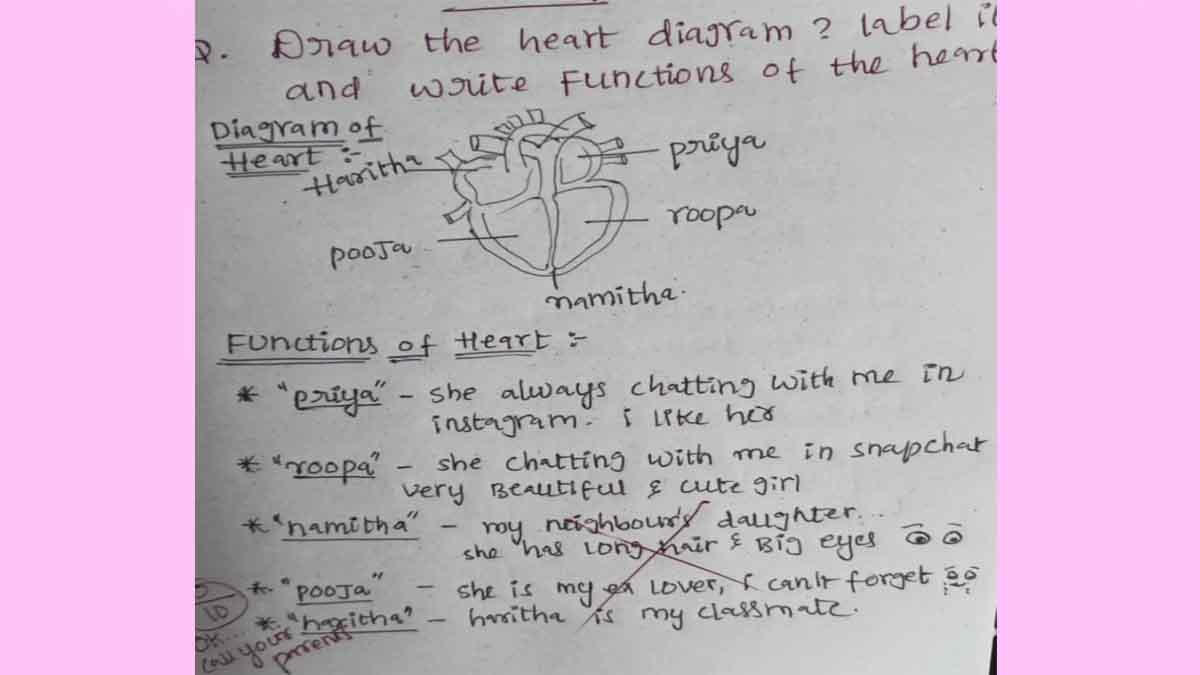 Q. Draw the heart diagram? label it
and write Functions of the heart
Diagram of
Heart :-
Haritha
priya
roopa
pooja
namitha.
Functions of Heart :-
* "priya" - she always chatting with me in
instagram. i like her
* "roopa" - she chatting with me in snapchat
very Beautiful & cute girl
* "namitha" - my neighbour's daughter...
she has long hair & Big eyes
* "pooja" - she is my ex lover, i can't forget
* "haritha" - haritha is my classmate.
10
OK...
call your
parents